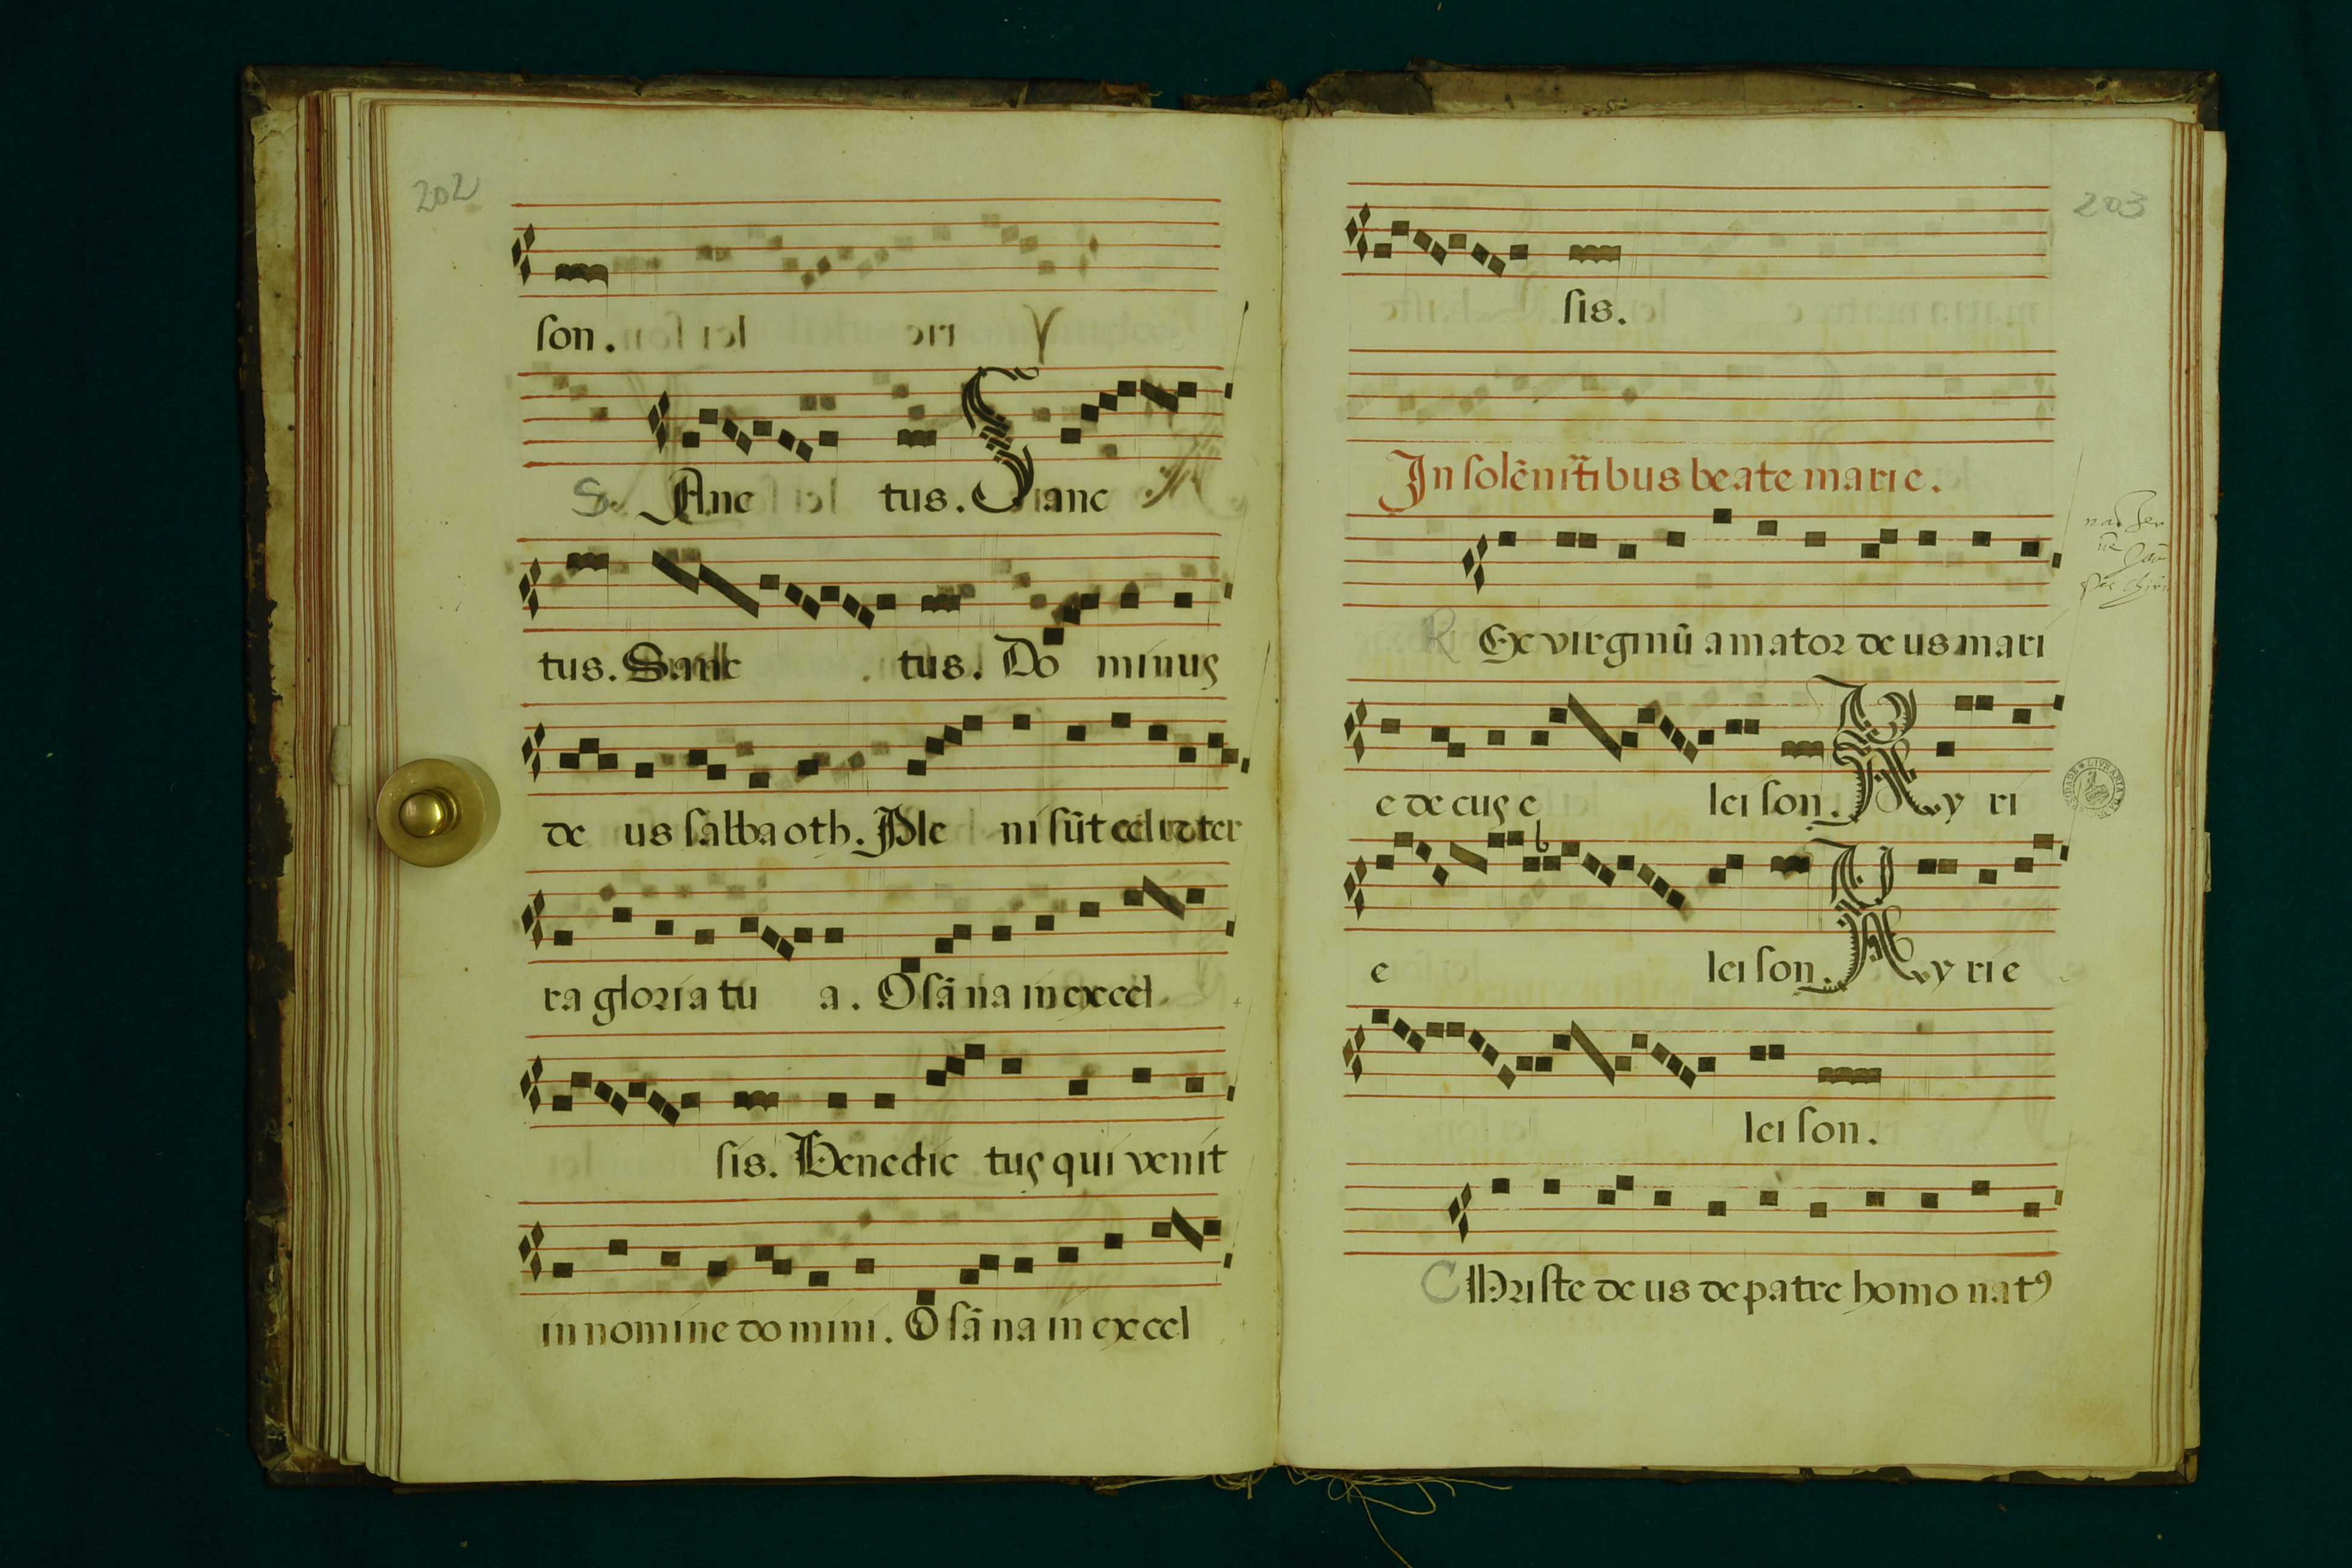 202
son.
S. Anc tus. Sanc
tus. Sanc tus. Do minus
de us sabbaoth. Ple ni sūt celi et ter
ra gloria tu a. O sā na in excel
sis. Benedic tus qui venit
in nomine do mini. O sā na in excel
203
sis.
In solēnitātibus beate marie.
R Ex virginū amator de us mari
e decus e lei son. Ky ri
e lei son. Ky ri e
lei son.
C Hriste de us de patre homo natꝰ